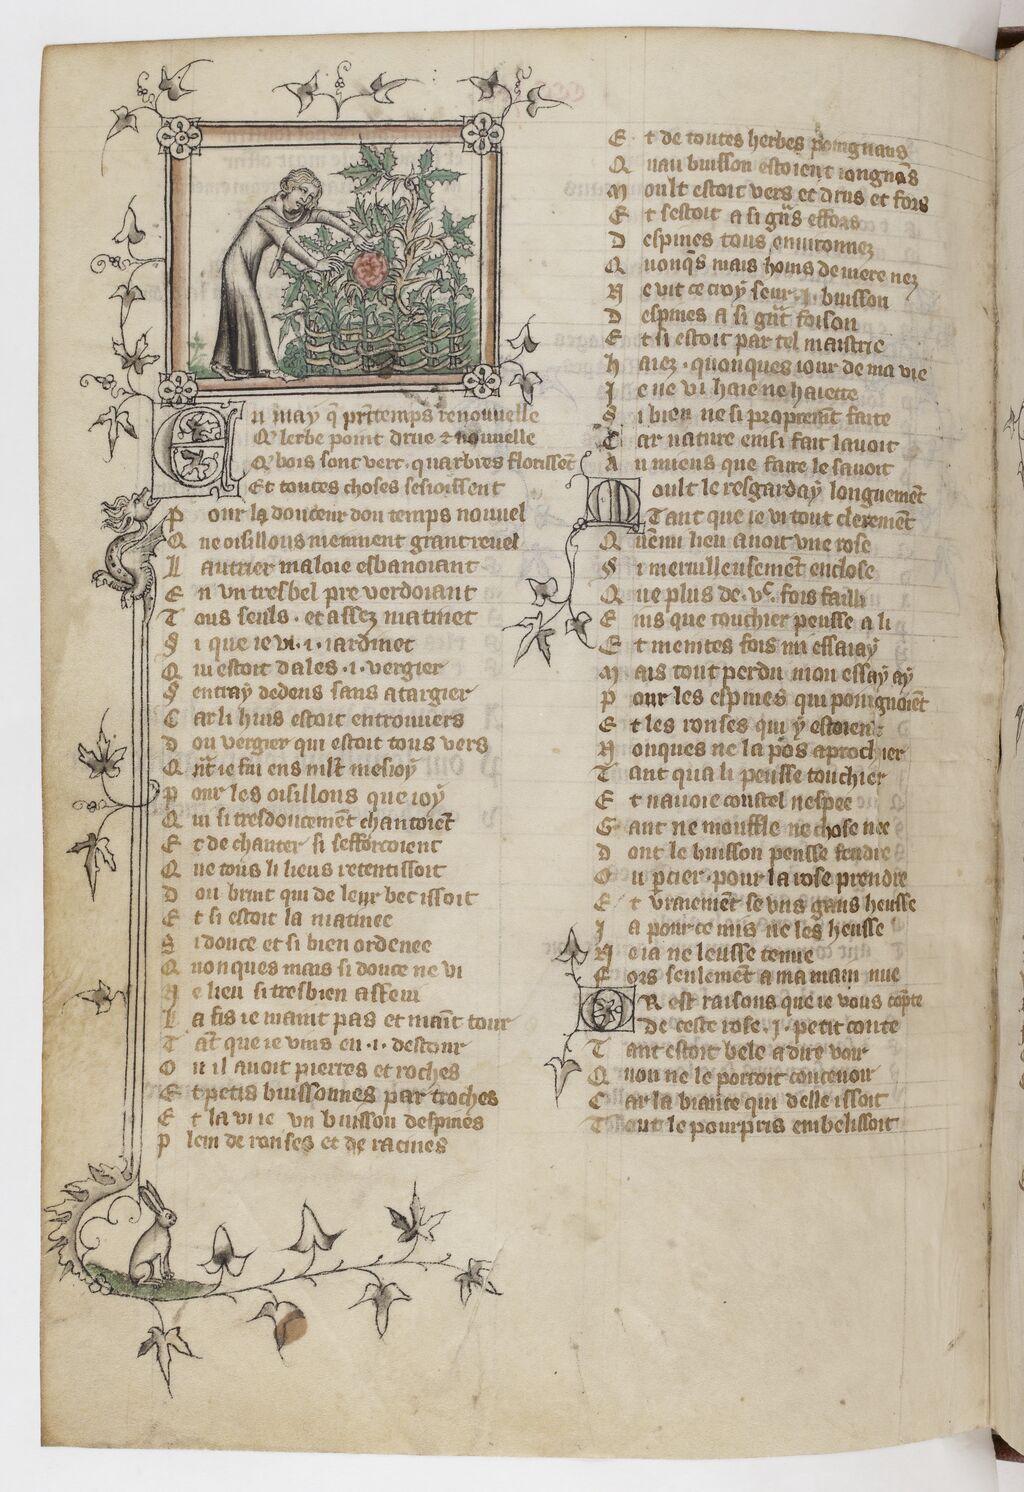 En may q̃ prĩtemps renouvelle
Q lerbe point drue ⁊ nouvelle
Q bois sont vert. quarbres florissẽt
Et toutes choses sesioissent
Pour la douceur dou temps nouuel
Que oisillons mennent grant reuel
Lautrier maloie esbanoiant
En vn tresbel pre verdoiant
Tous seuls. et assez matinet
Si que ie vi .i. iardinet
Qui estoit dales .i. vergier
Sentray dedens sans atargier
Car li huis estoit entrouuers
Dou vergier qui estoit tous vers
Qñt ie fui ens mlt̃ mesioy
Pour les oisillons que ioy
Qui si tresdoucemẽt chantoiẽt
Et de chanter si sefforcoient
Que tous li lieus retentissoit
Dou bruit qui de leur bec issoit
Et si estoit la matinee
Si douce et si bien ordenee
Quonques mais si douce ne vi
Ne lieu si tresbien asseui
La fis ie maint pas et maĩt tour
Tãt que ie vins en .i. destour
Ou il auoit pierres et roches
Et petis buissonnes par troches
Et la vi ie vn buisson despines
Plein de ronses et de racines
Et de toutes herbes poingnans
Quau buisson estoient iongnãs
Moult estoit vers et drus et fors
Et sestoit a si gñs effors
Despines tous enuironnez
Quonq̃s mais homs de mere nez
Ne vit ce croy seur .i. buisson
Despines a si gñt foison
Et si estoit par tel maistrie
Haiez. quonques iour de ma vie
Ie ne vi haie ne haiette
Si bien ne si propremẽt faite
Car nature ensi fait lauoit
A miens que faire le sauoit
Moult le resgarday longuemẽt
Tant que ie vi tout cleremẽt
Quenmi lieu auoit vne rose
Si merueilleusemẽt enclose
Que plus de .vᶜ. fois failli
Eins que touchier peusse a li
Et meintes fois mi essaiay
Mais tout perdu mon essay ay
Pour les espines qui poingnoiẽt
Et les ronses qui y estoient
Nonques ne la pos aprochier
Tant qua li peusse touchier
Et nauoie coustel nespee
Gant ne mouffle ne chose nee
Dont le buisson peusse fendre
Ou p̱cier. pour la rose prendre
Et vraiemẽt se vns gans heusse
Ia pour ce mis ne les heusse
Ne ia ne leusse tenue
Fors seulemẽt a ma main nue
Or est raisons que ie vous cõpte
de ceste rose .i. petit conte
Tant estoit bele a dire voir
Quon ne le porroit conceuoir
Car la biaute qui delle issoit
Tout le pourpris embelissoit